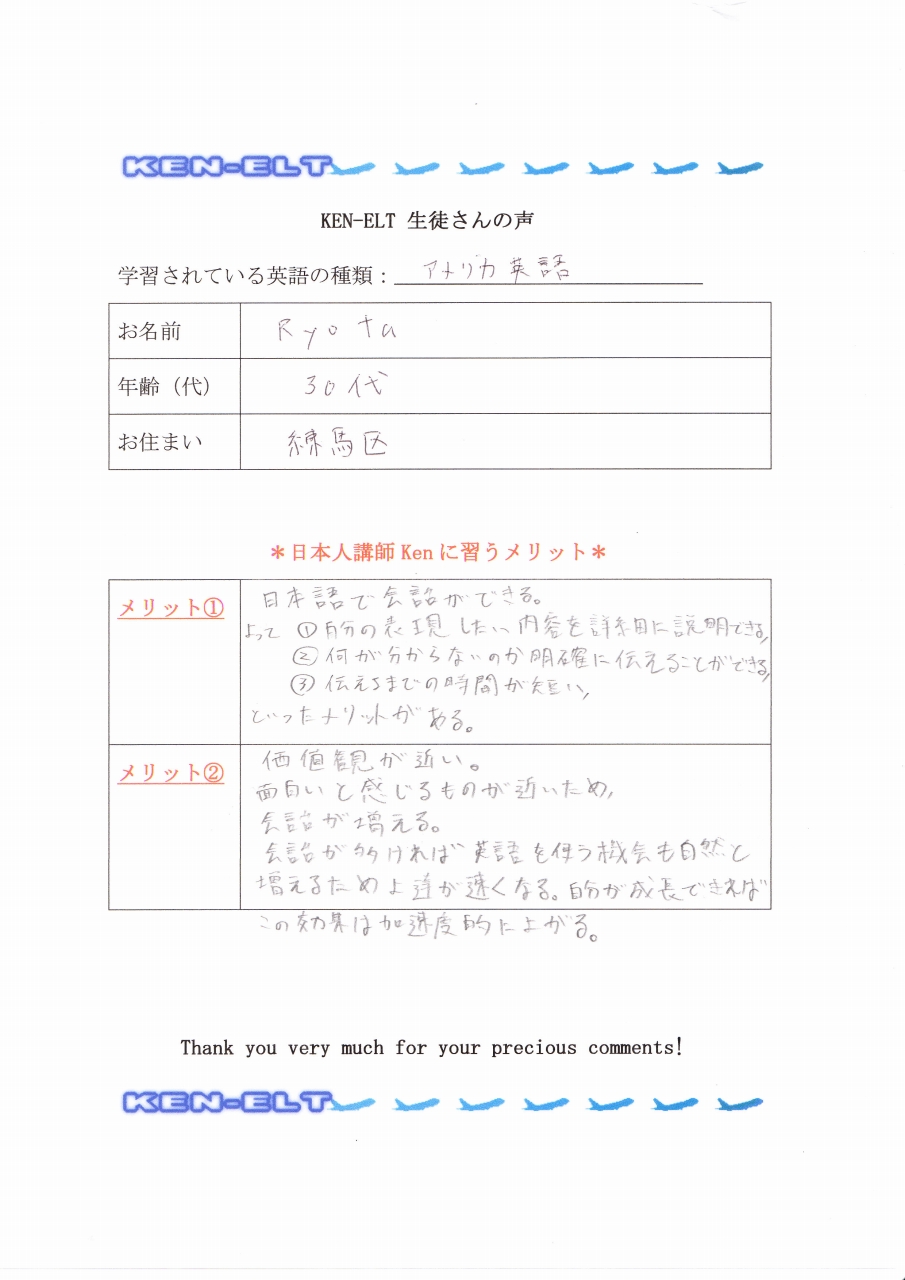 KEN-ELT
KEN-ELT 生徒さんの声
学習されている英語の種類： アメリカ英語
お名前 Ryota
年齢（代） 30代
お住まい 練馬区
＊日本人講師 Ken に習うメリット＊
メリット① 日本語で会話ができる。
よって ①自分の表現したい内容を詳細に説明できる,
②何が分からないのか明確に伝えることができる,
③伝えるまでの時間が短い,
といったメリットがある。
メリット② 価値観が近い。
面白いと感じるものが近いため,
会話が増える。
会話が多ければ英語を使う機会も自然と
増えるため上達が速くなる。自分が成長できれば
この効果は加速度的に上がる。
Thank you very much for your precious comments!
KEN-ELT